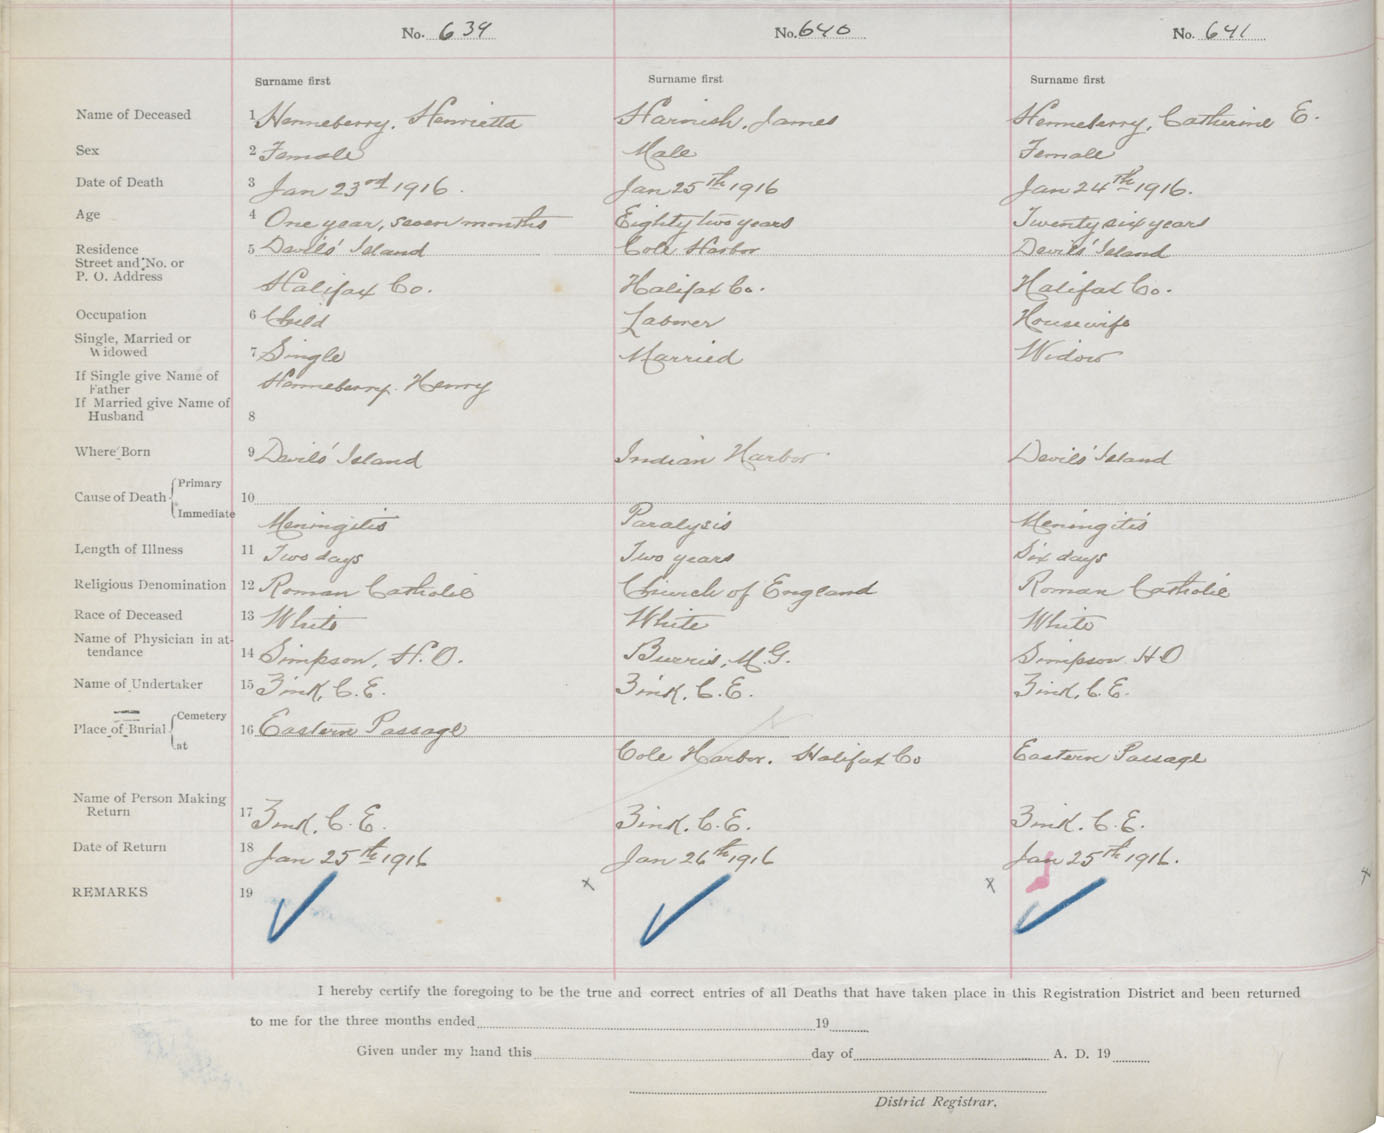 No. 639 No. 640 No. 641
Surname first Surname first Surname first
Name of Deceased 1 Henneberry, Henrietta Harnish, James Henneberry, Catherine E.
Sex 2 Female Male Female
Date of Death 3 Jan 23rd 1916. Jan 25th 1916 Jan 24th 1916.
Age 4 One year, seven months Eighty two years Twenty six years
Residence 5 Devils' Island Cole Harbor Devils' Island
Street and No. or
P. O. Address Halifax Co. Halifax Co. Halifax Co.
Occupation 6 Child Laborer Housewife
Single, Married or
Widowed 7 Single Married Widow
If Single give Name of
Father Henneberry. Henry
If Married give Name of
Husband 8
Where Born 9 Devils' Island Indian Harbor Devils' Island
Cause of Death Primary 10
Immediate Meningitis Paralysis Meningitis
Length of Illness 11 Two days Two years Six days
Religious Denomination 12 Roman Catholic Church of England Roman Catholic
Race of Deceased 13 White White White
Name of Physician in at-
tendance 14 Simpson, H. O. Burris, M. G. Simpson H O
Name of Undertaker 15 Zink, C. E. Zink, C. E. Zink, C. E.
Place of Burial Cemetery 16 Eastern Passage
at Cole Harbor. Halifax Co Eastern Passage
Name of Person Making
Return 17 Zink, C. E. Zink, C. E. Zink. C. E.
Date of Return 18 Jan 25th 1916 Jan 26th 1916 Jan 25th 1916.
REMARKS 19 x x x
I hereby certify the foregoing to be the true and correct entries of all Deaths that have taken place in this Registration District and been returned
to me for the three months ended 19
Given under my hand this day of A. D. 19
District Registrar.